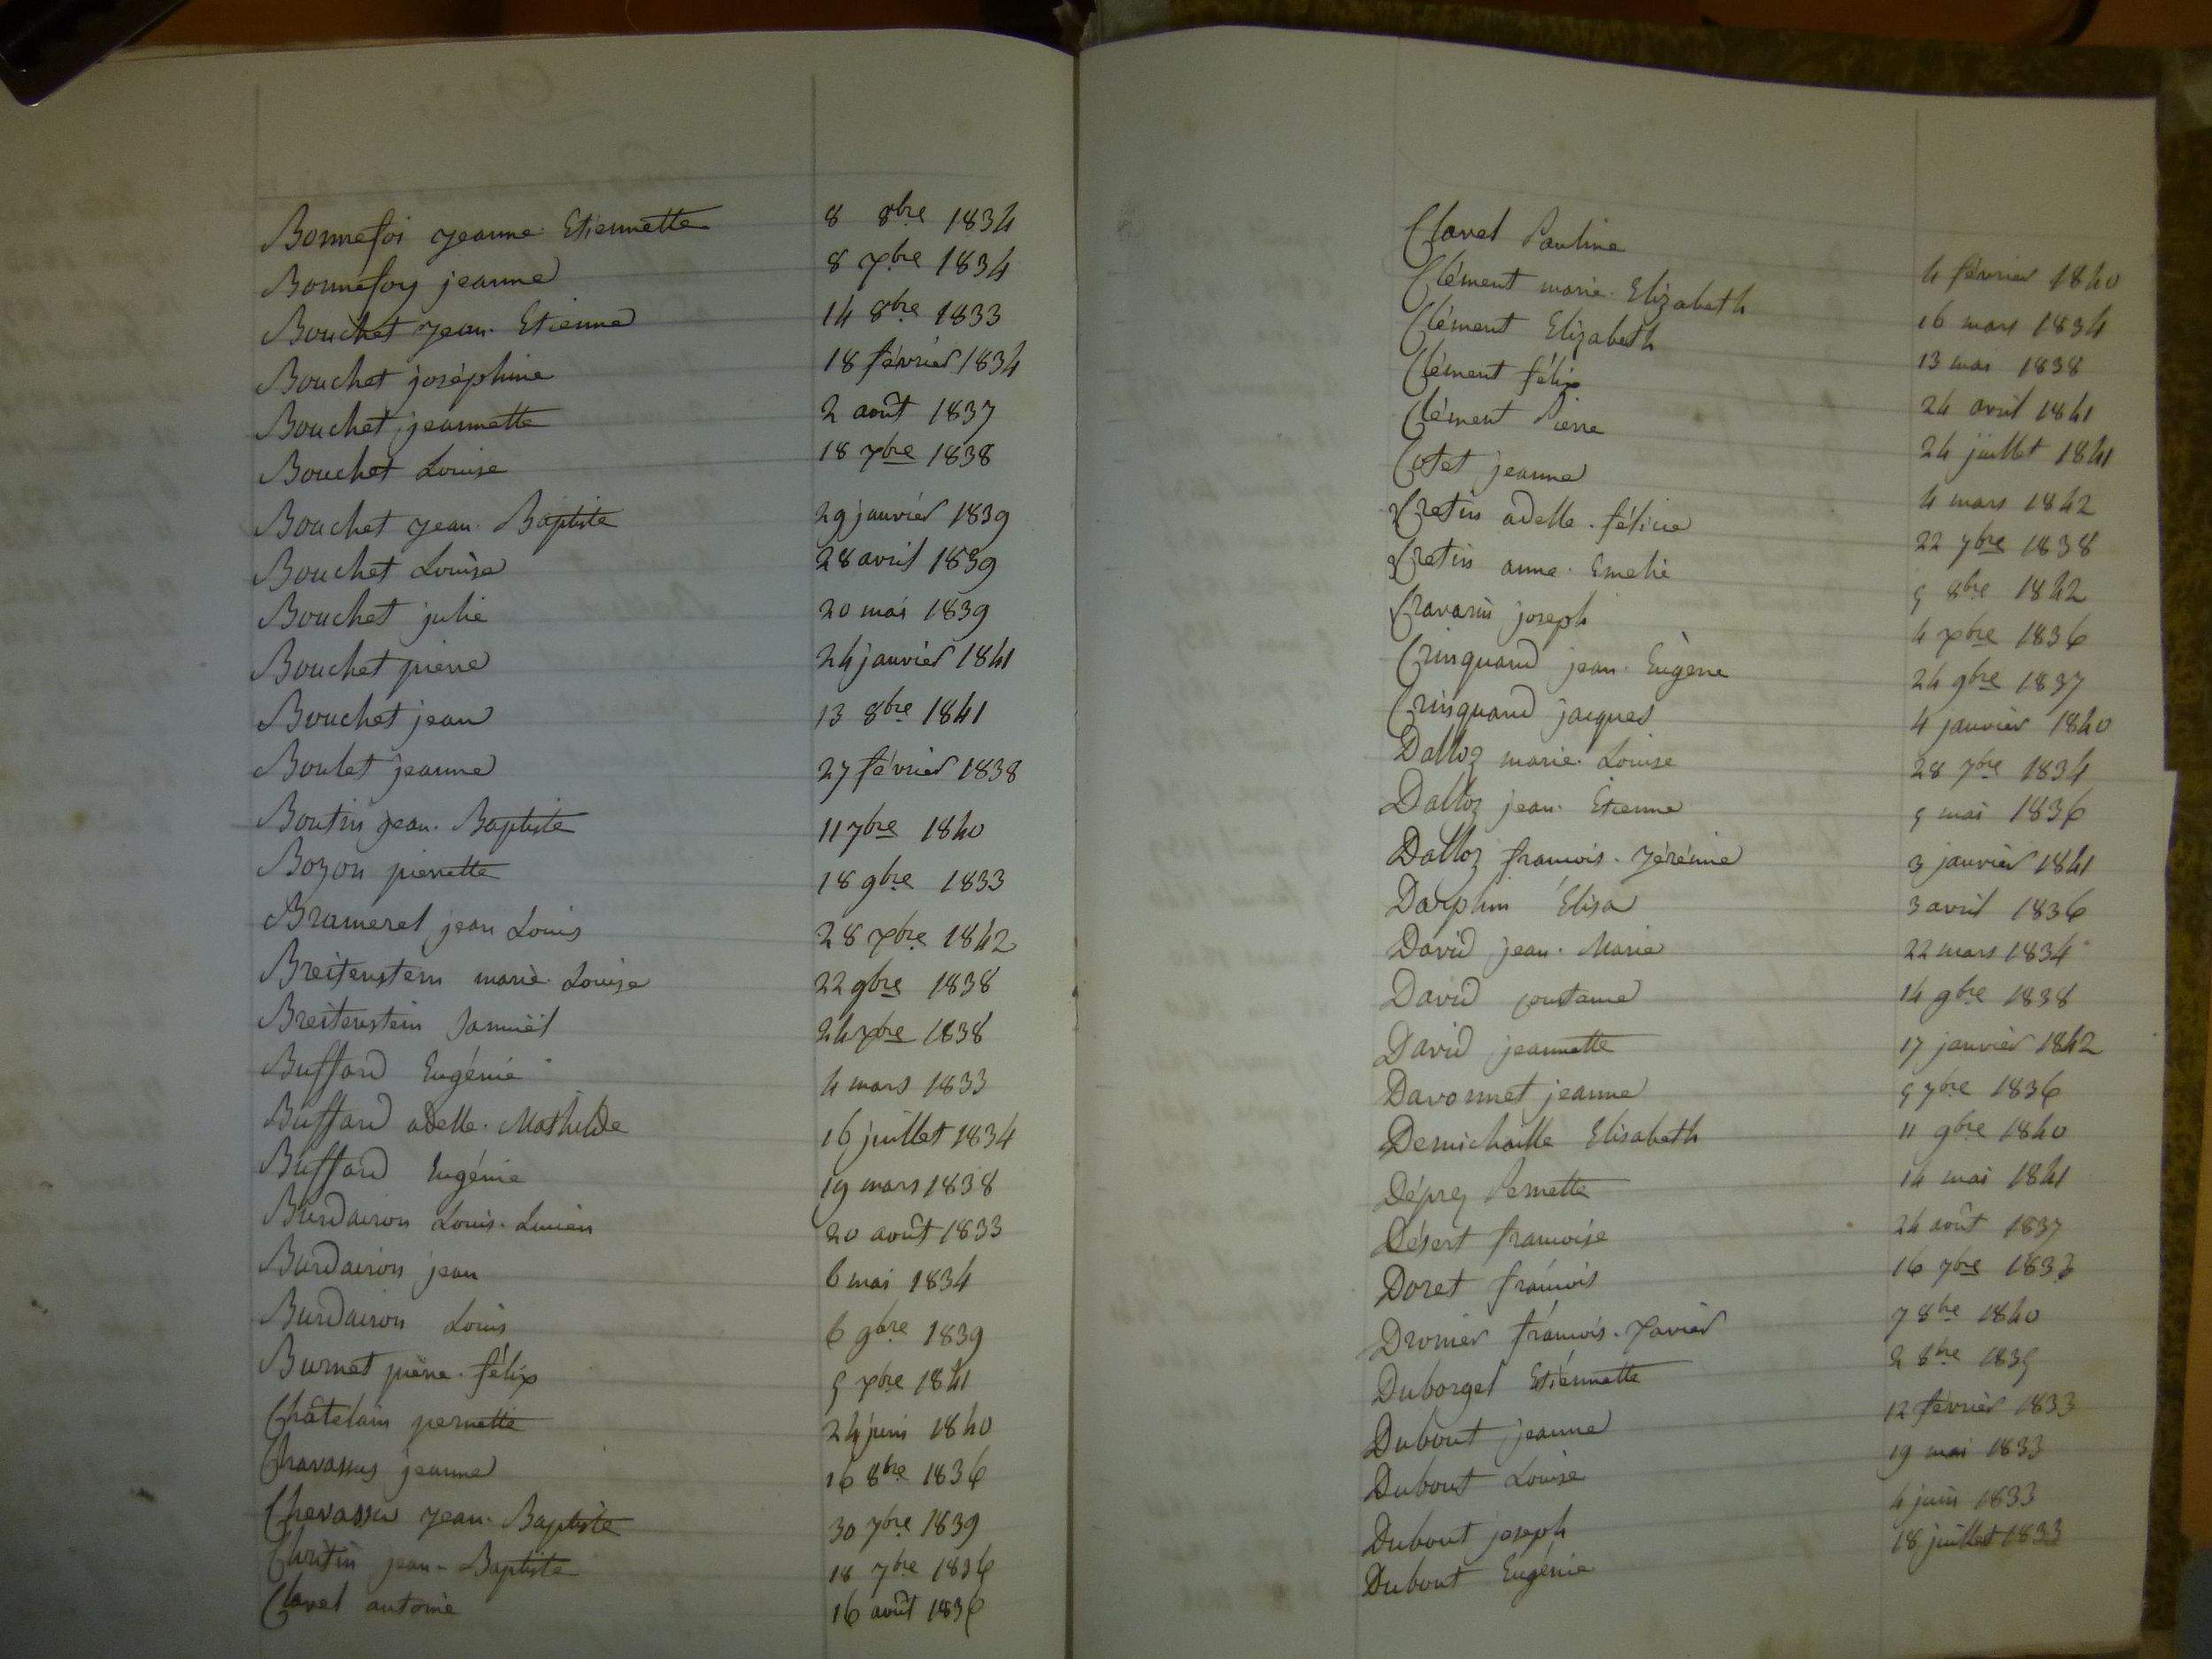 Bonnefoi Jeanne Etiennette 8 8bre 1834
Bonnefoy jeanne 8 Xbre 1834
Bouchet Jean Etienne 14 8bre 1833
Bouchet joséphine 18 février 1834
Bouchet jeannette 2 août 1837
Bouchet Louise 18 7bre 1838
Bouchet Jean Baptiste 29 janvier 1839
Bouchet Louise 28 avril 1839
Bouchet julie 20 mai 1839
Bouchet pierre 24 janvier 1841
Bouchet jean 13 8bre 1841
Boulet jeanne 27 février 1838
Boutin Jean Baptiste 11 7bre 1840
Bozon pierrette 18 9bre 1833
Brameret jean Louis 28 Xbre 1842
Breitenstein marie Louise 22 9bre 1838
Breitenstein Samuël 24 Xbre 1838
Buffard Eugénie 4 mars 1833
Buffard adelle Mathilde 16 juillet 1834
Buffard Eugénie 19 mars 1838
Burdairon Louis Lucien 20 août 1833
Burdairon jean 6 mai 1834
Burdairon Louis 6 9bre 1839
Burnet pierre félix 5 Xbre 1841
Châtelain pernette 24 juin 1840
Chavassus jeanne 16 8bre 1836
Chevassu Jean Baptiste 30 7bre 1839
Christin jean-Baptiste 18 7bre 1836
Clavel antoine 16 août 1836
Clavel Pauline 4 février 1840
Clément marie Elizabeth 16 mars 1834
Clément Elizabeth 13 mai 1838
Clément félix 24 avril 1841
Clément Pierre 24 juillet 1841
Cotet jeanne 4 mars 1842
Cretin adelle félicie 22 7bre 1838
Cretin anne Emelie 5 8bre 1842
Cravarin joseph 4 Xbre 1836
Crinquand jean Eugène 24 9bre 1837
Crinquand jacques 4 janvier 1840
Dalloz marie Louise 28 7bre 1834
Dalloz jean Etienne 5 mai 1836
Dalloz francois Jérémie 3 janvier 1841
Darphin Élisa 3 avril 1836
David jean Marie 22 mars 1834
David constance 14 9bre 1838
David jeannette 17 janvier 1842
Davonnet jeanne 5 7bre 1836
Demichaille Elisabeth 11 9bre 1840
Déprez Pernette 14 mai 1841
Désert francoise 24 août 1837
Doret francois 16 7bre 1833
Dronier francois Xavier 7 8bre 1840
Duborget Etiennette 2 8bre 1835
Dubout jeanne 12 février 1833
Dubout Louise 19 mai 1833
Dubout joseph 4 juin 1833
Dubout Eugénie 18 juillet 1833